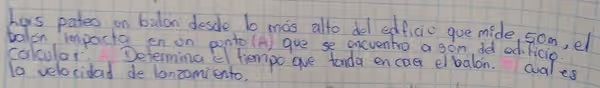 hus patea un balon desde lo más alto del edificio que mide, 50m, el
balon impacta en un punto (A) que se encuentra a 90m del edificio.
Calcular. Determina el tiempo que tarda en caer el balon. cual es
la velocidad de lanzamiento.